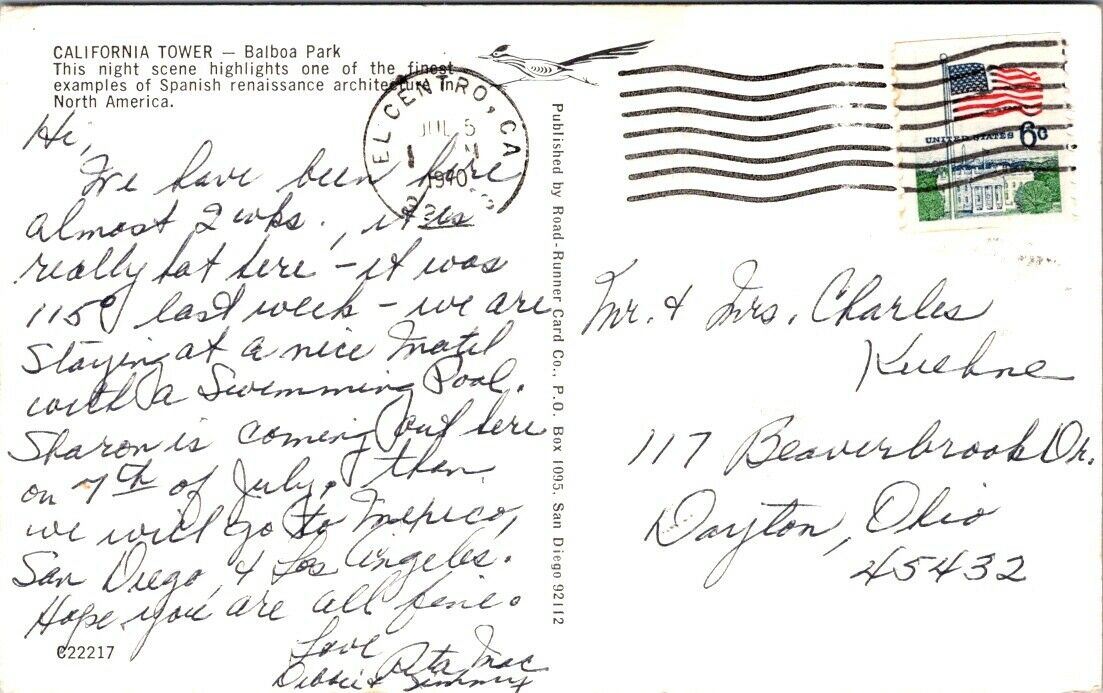 CALIFORNIA TOWER — Balboa Park
This night scene highlights one of the finest
examples of Spanish renaissance architecture in
North America.
Hi,
We have been here
almost 2 wks., it is
really hot here - it was
115° last week - we are
staying at a nice Motel
with a Swimming Pool.
Sharon is coming out here
on 7th of July, than
we will go to Mexico,
San Diego, & Los Angeles.
Hope you are all fine.
Love
Rita Mac
Debbie & Jimmy
C22217
Published by Road-Runner Card Co., P.O. Box 1095, San Diego 92112
EL CENTRO, CA
JUL 5
1970
UNITED STATES 6c
Mr. & Mrs. Charles
Kuehne
117 Beaverbrook Dr.
Dayton, Ohio
45432